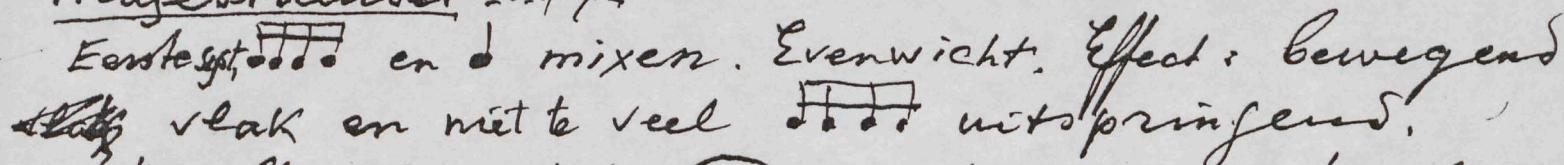 Eerste spt. en mixen. Evenwicht. Effect: bewegend
vlak en niet te veel uitspringend.